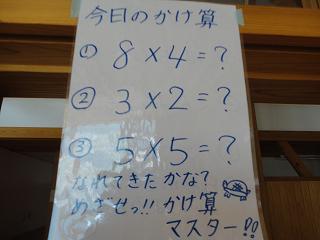 今日のかけ算
① 8×4=?
② 3×2=?
③ 5×5=?
なれてきたかな?
めざせっ!! かけ算
マスター!!